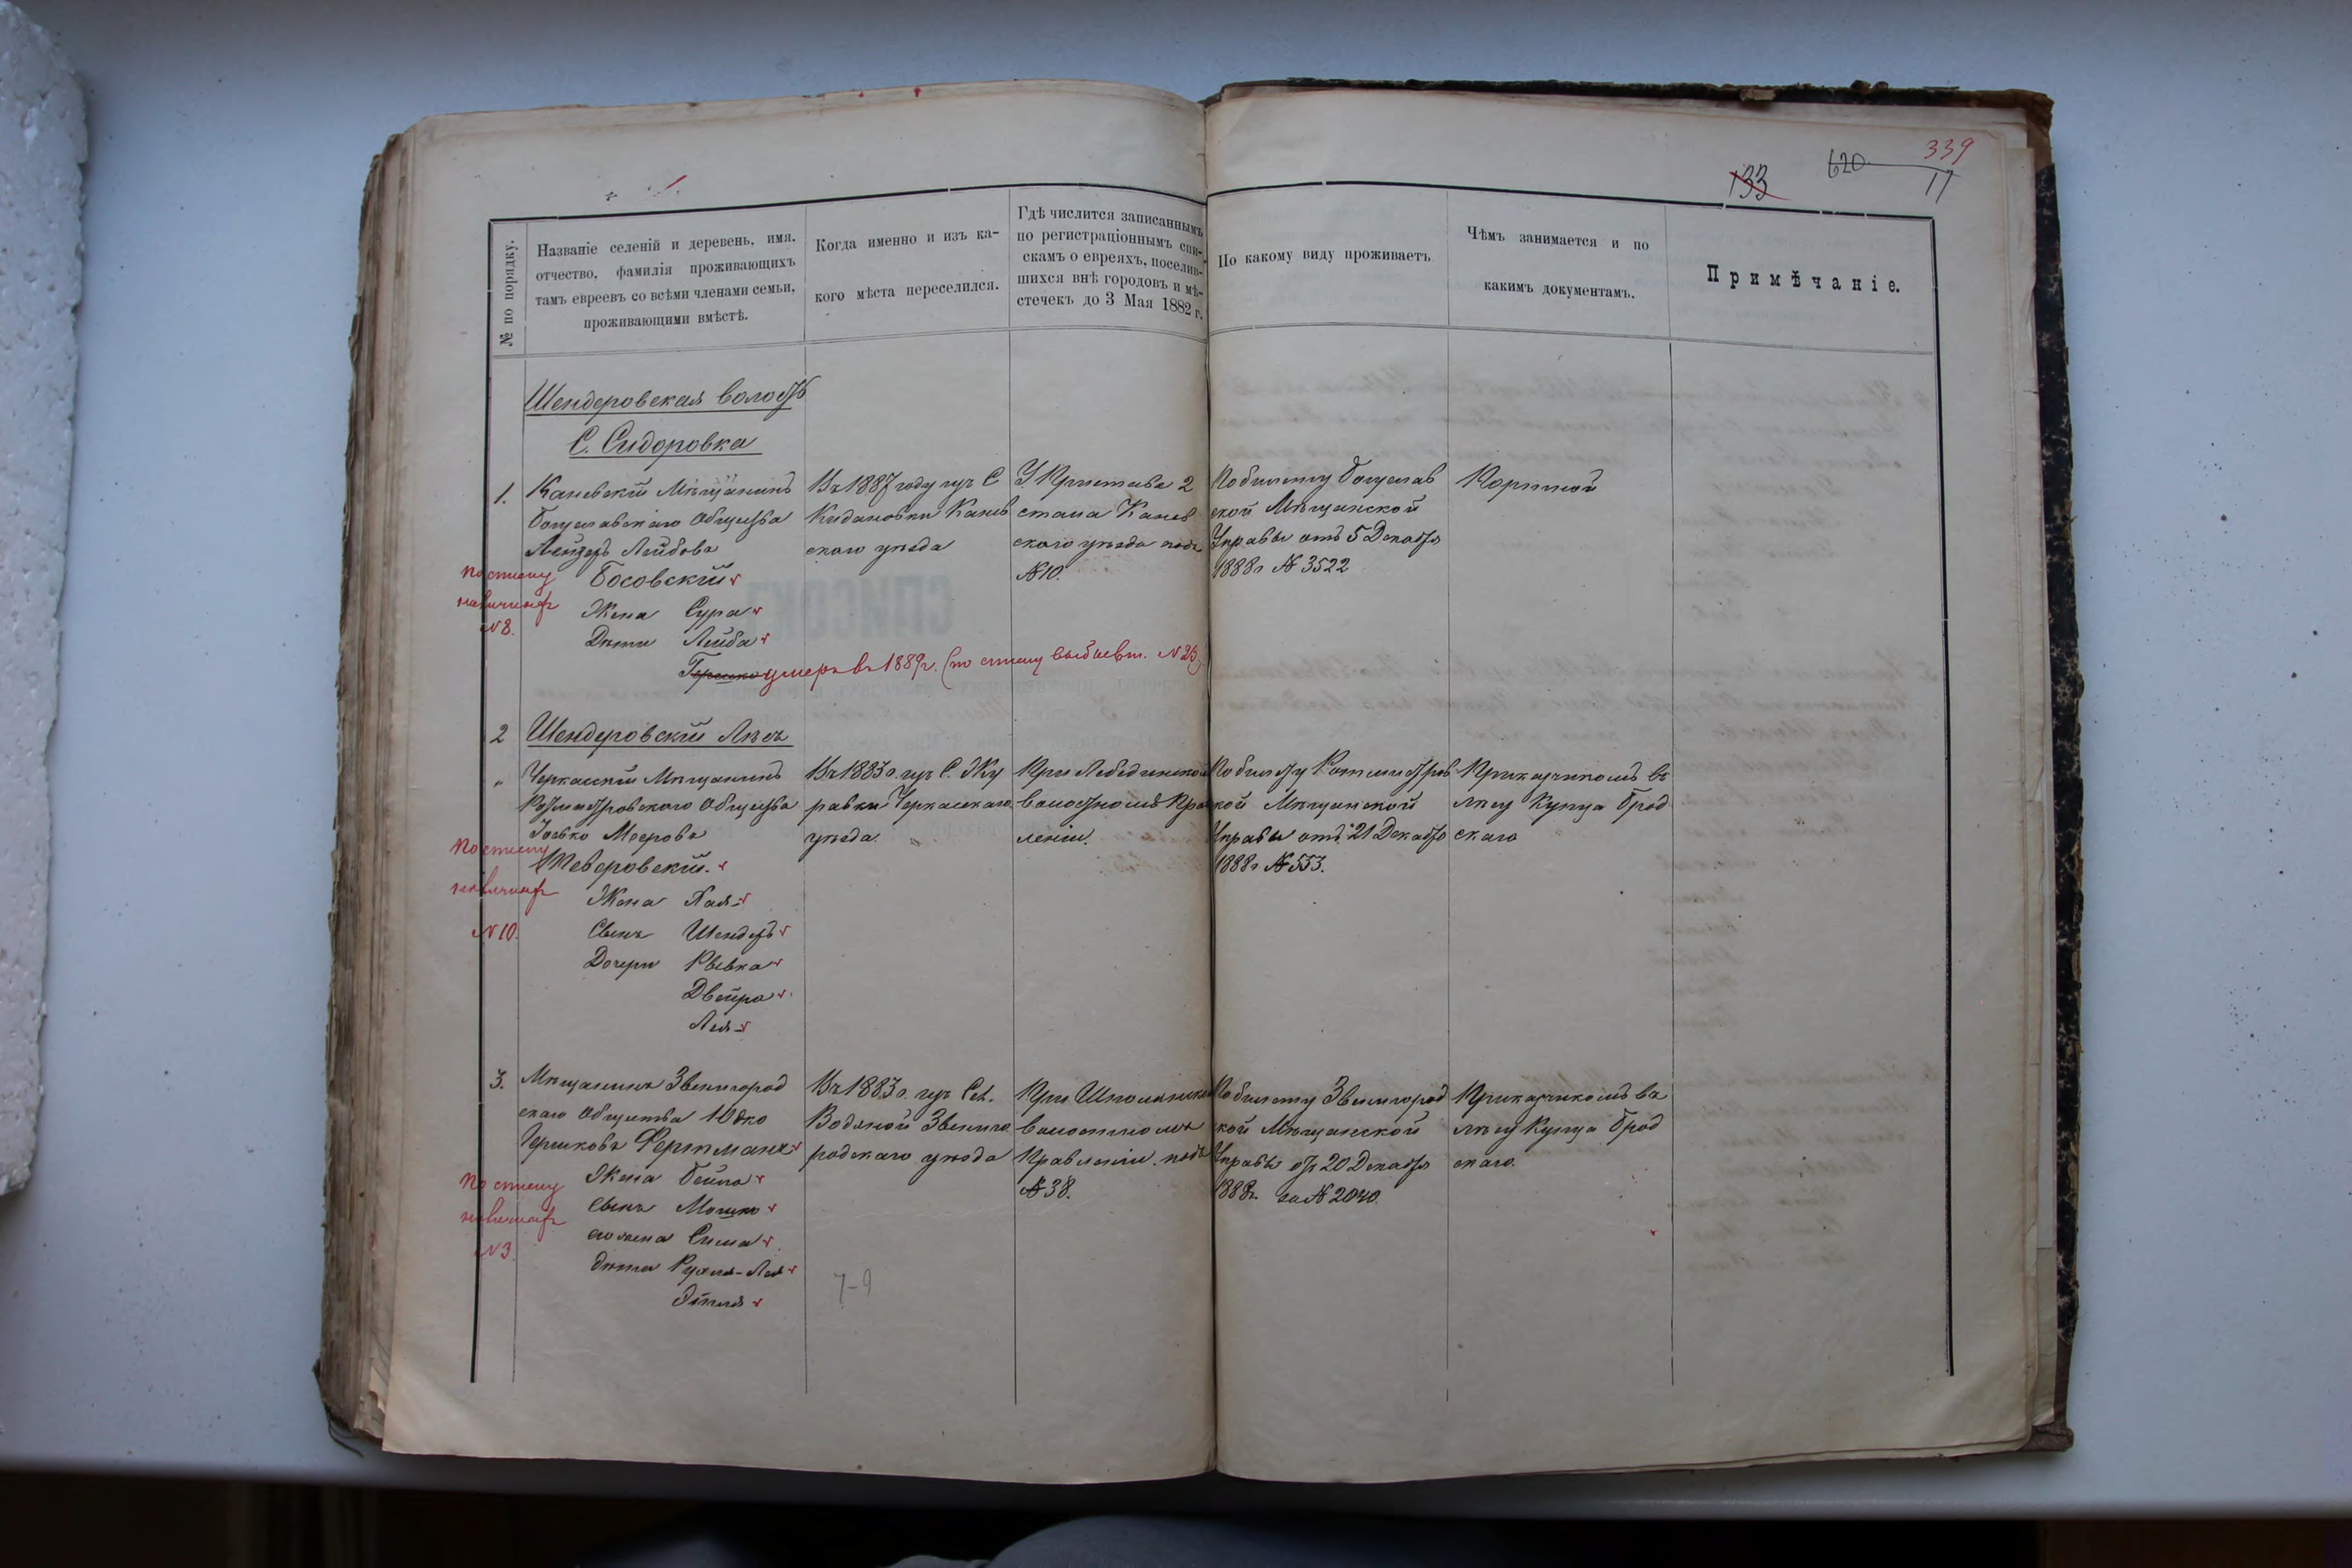 339
620
11
133
№ по порядку.
Названіе селеній и деревень, имя,
отчество, фамилія проживающихъ
тамъ евреевъ со всѣми членами семьи,
проживающими вмѣстѣ.
Когда именно и изъ ка-
кого мѣста переселился.
Гдѣ числится записаннымъ
по регистраціоннымъ спи-
скамъ о евреяхъ, поселив-
шихся внѣ городовъ и мѣ-
стечекъ до 3 Мая 1882 г.
По какому виду проживаетъ
Чѣмъ занимается и по
какимъ документамъ.
Примѣчаніе.
Шендеровская волость
С. Сидоровка
1.
Каневскій Мѣщанинъ
Богуславскаго Общества
Лейзеръ Лейбовъ
Босовскій
Жена Сура
Дѣти Лейба
Гершко умеръ въ 1889 г. (по списку выбывш. №23)
По списку
наличнаго
№8.
Въ 1887 году изъ С
Кидановки Канев
скаго уѣзда
У Пристава 2
стана Канев
скаго уѣзда подъ
№10.
По билету Богуслав
ской Мѣщанской
Управы отъ 5 Декабря
1888 г №3522
Портной
2
Шендеровскій Лѣсъ
"
Черкасскій Мѣщанинъ
Ротмистровскаго Общества
Іосько Мееровъ
Тверовскій.
Жена Хая
Сынъ Шендеръ
Дочери Рывка
Двейра
Лея
По списку
№10.
Въ 1883 г. изъ С. Жу
равки Черкасскаго
уѣзда.
При Лебединском
волостномъ Прав
леніи.
По билету Ротмистров
кой Мѣщанской
Управы отъ 21 Декабря
1888 г №553.
Прикащикомъ въ
лѣсу Купца Брод
скаго
3.
Мѣщанинъ Звенигород
скаго Общества Юдко
Гершковъ Фертманъ
Жена Бейла
Сынъ Мошко
его жена Сима
дѣти Рухля-Лея
Этля
По списку
№3
Въ 1883 г. изъ Сел.
Водяной Звениго
родскаго уѣзда
При Шполянском
волостномъ
Правленіи подъ
№38.
По билету Звенигород
кой Мѣщанской
Управы отъ 20 Декабря
1888 г. за №2040.
Прикащикомъ въ
лѣсу Купца Брод
скаго.
7-9